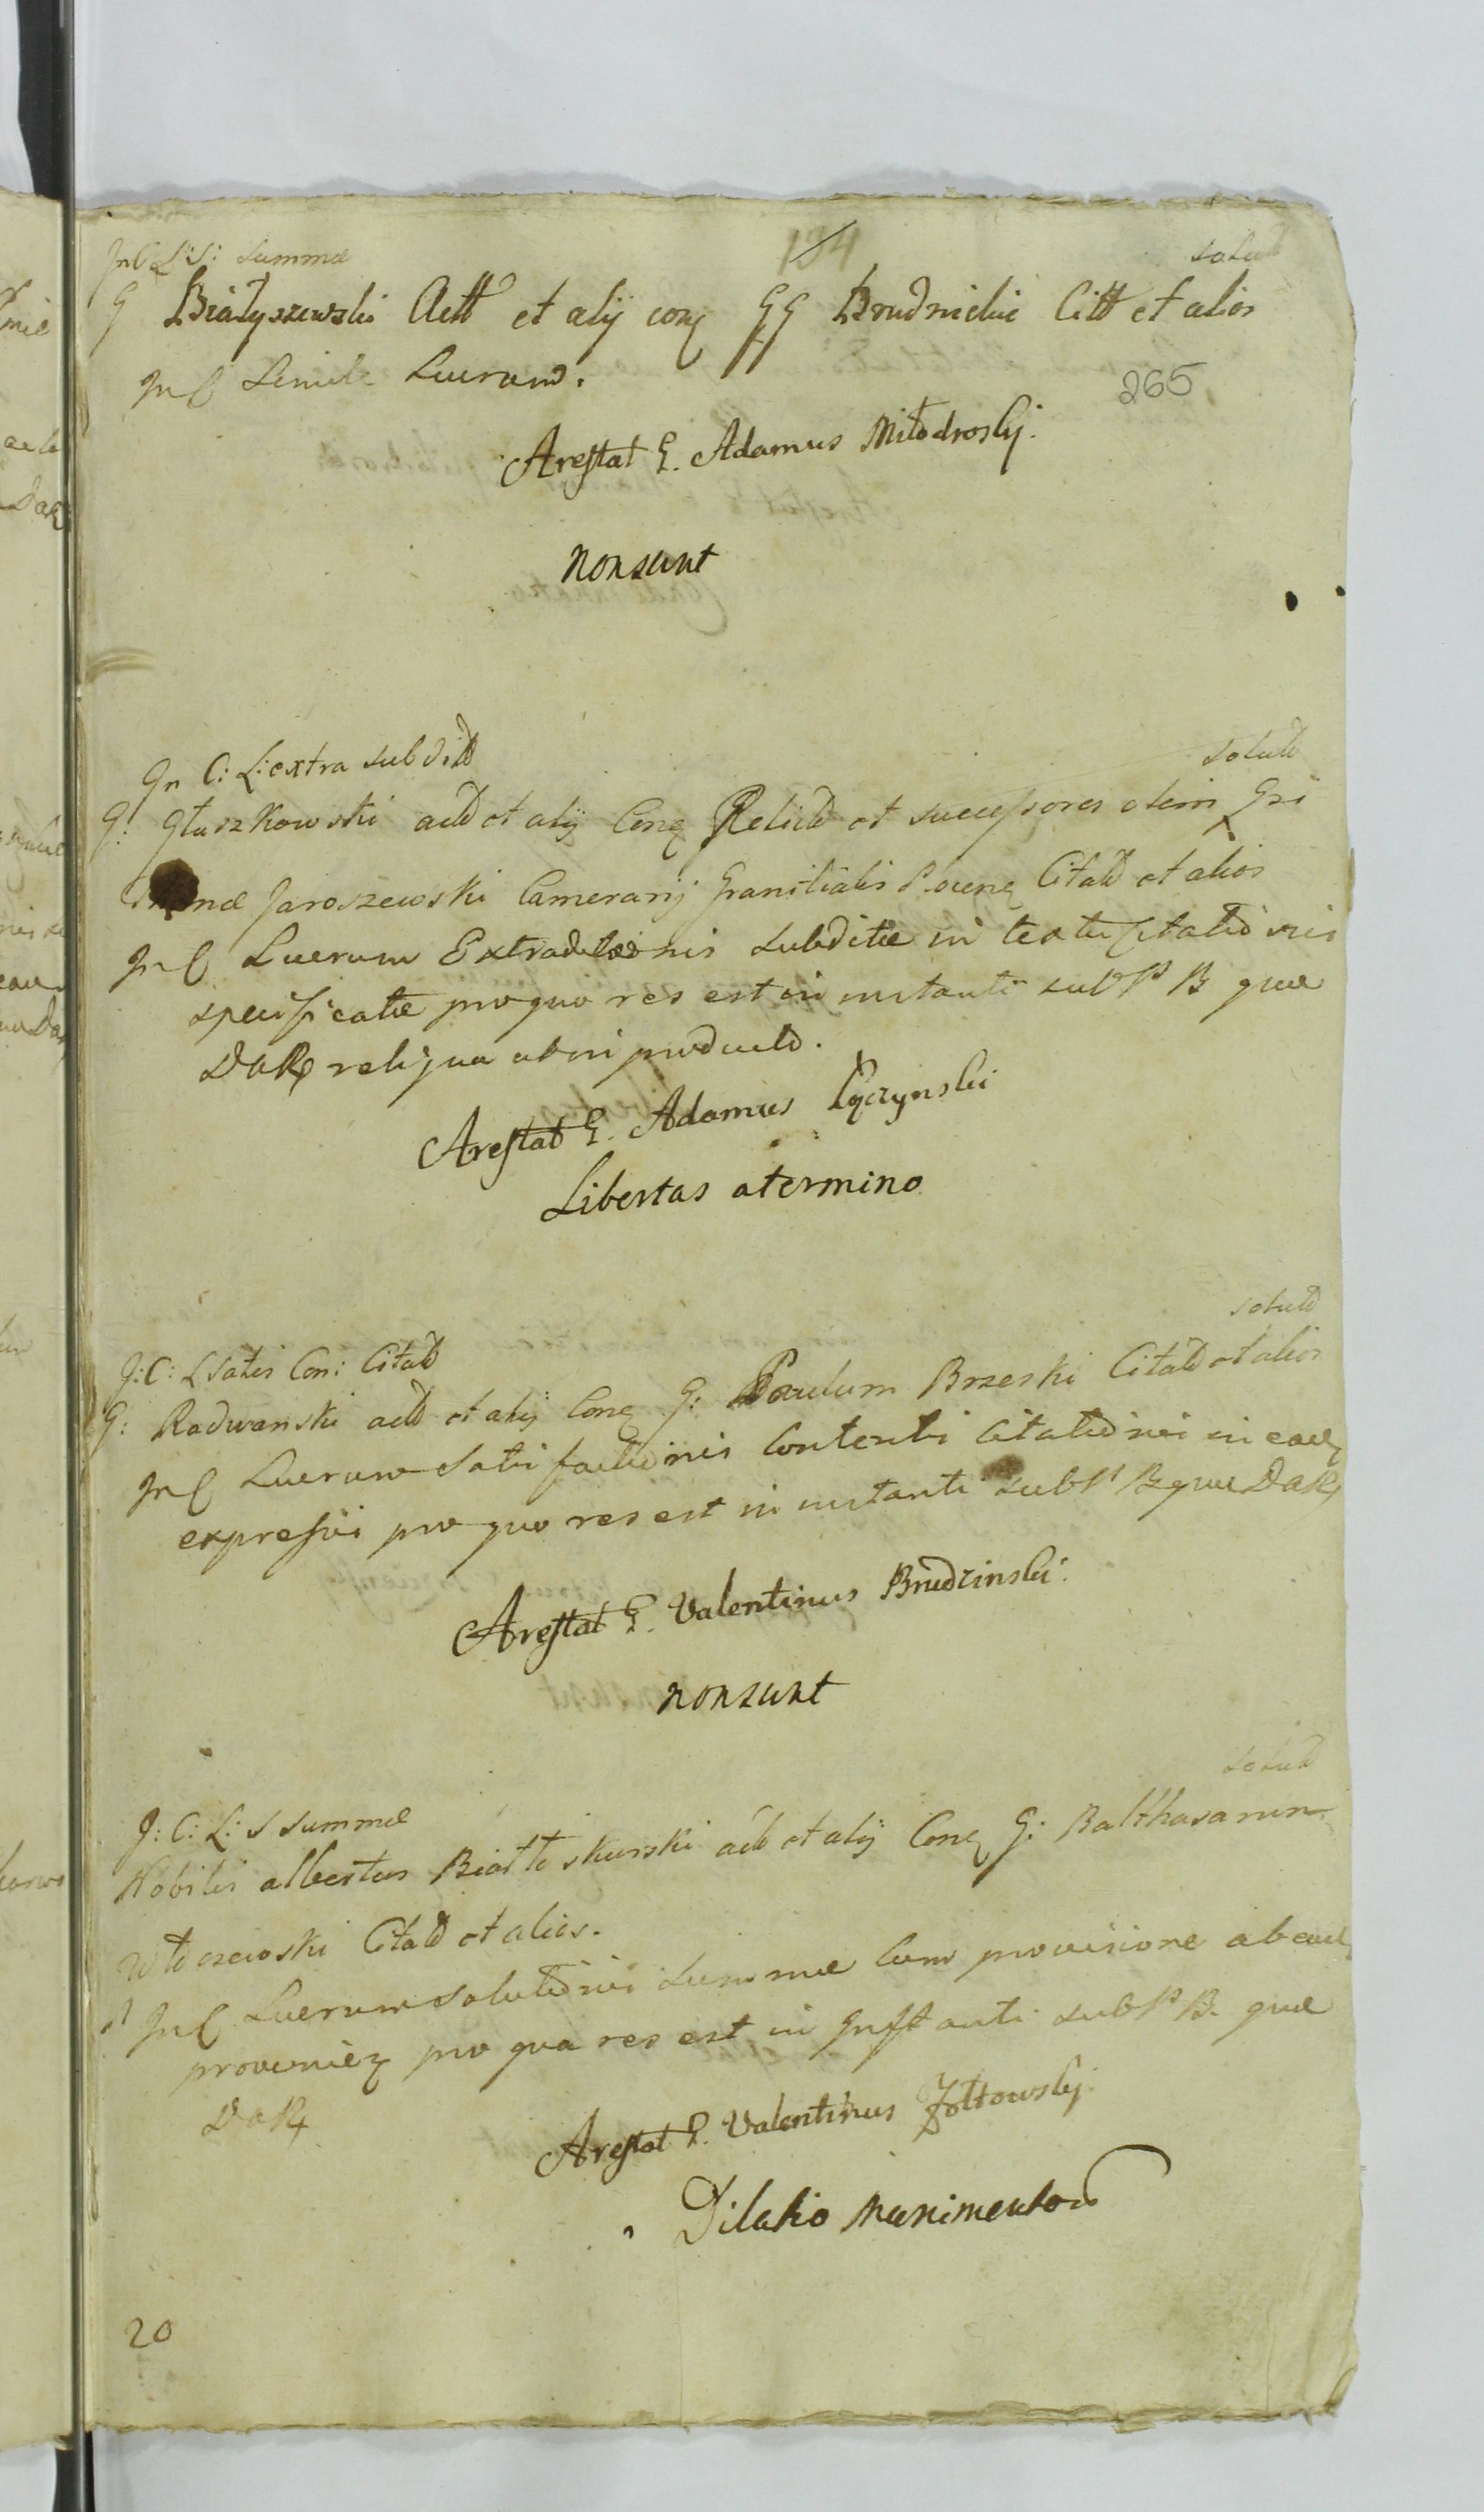 134
InC L: S: Summæ solutt
G Białyszewski Actt et alij conq GG Brudnickie Citt et alios
InC Simile Lucrum.
265
Arestat G. Adamus Miłodroskj.
Nonsunt
In C: L: extra subditt solutt
G: Głuszkowski actt et alij Conq Relictt et successores olim Gri
Jaroszewski Camerarij Granitialis Citatt et alios
InC Lucrum Extraditionis subditæ in textu Citationis
specificatæ pro quo res est in instanti sub P B que
DaRq reliqua ut in productt.
Arestat G. Adamus Łączynski
Libertas atermino
J: C: L Satis Con: Citatt solutt
G: Radwanski actt et alij Conq G: Paulum Brzeski Citatt et alios
InC Lucrum Satisfactionis Contenti Citationis in eaq
expressi pro quo res est in instanti sub P B que DaRq
Arestat G. Valentinus Brudzinski.
nonsunt
J: C: L: S summæ solutt
Nobilis albertus Białłoskurski actt et alij Conq G: Balthasarum
Citatt et alios.
InC Lucrum solutionis summæ Cum provisione ab eaq
provenieq pro qua res est in Instanti sub P B. que
DaRq
Arestat G. Valentinus Żółtowskj.
Dilatio Munimentow
20